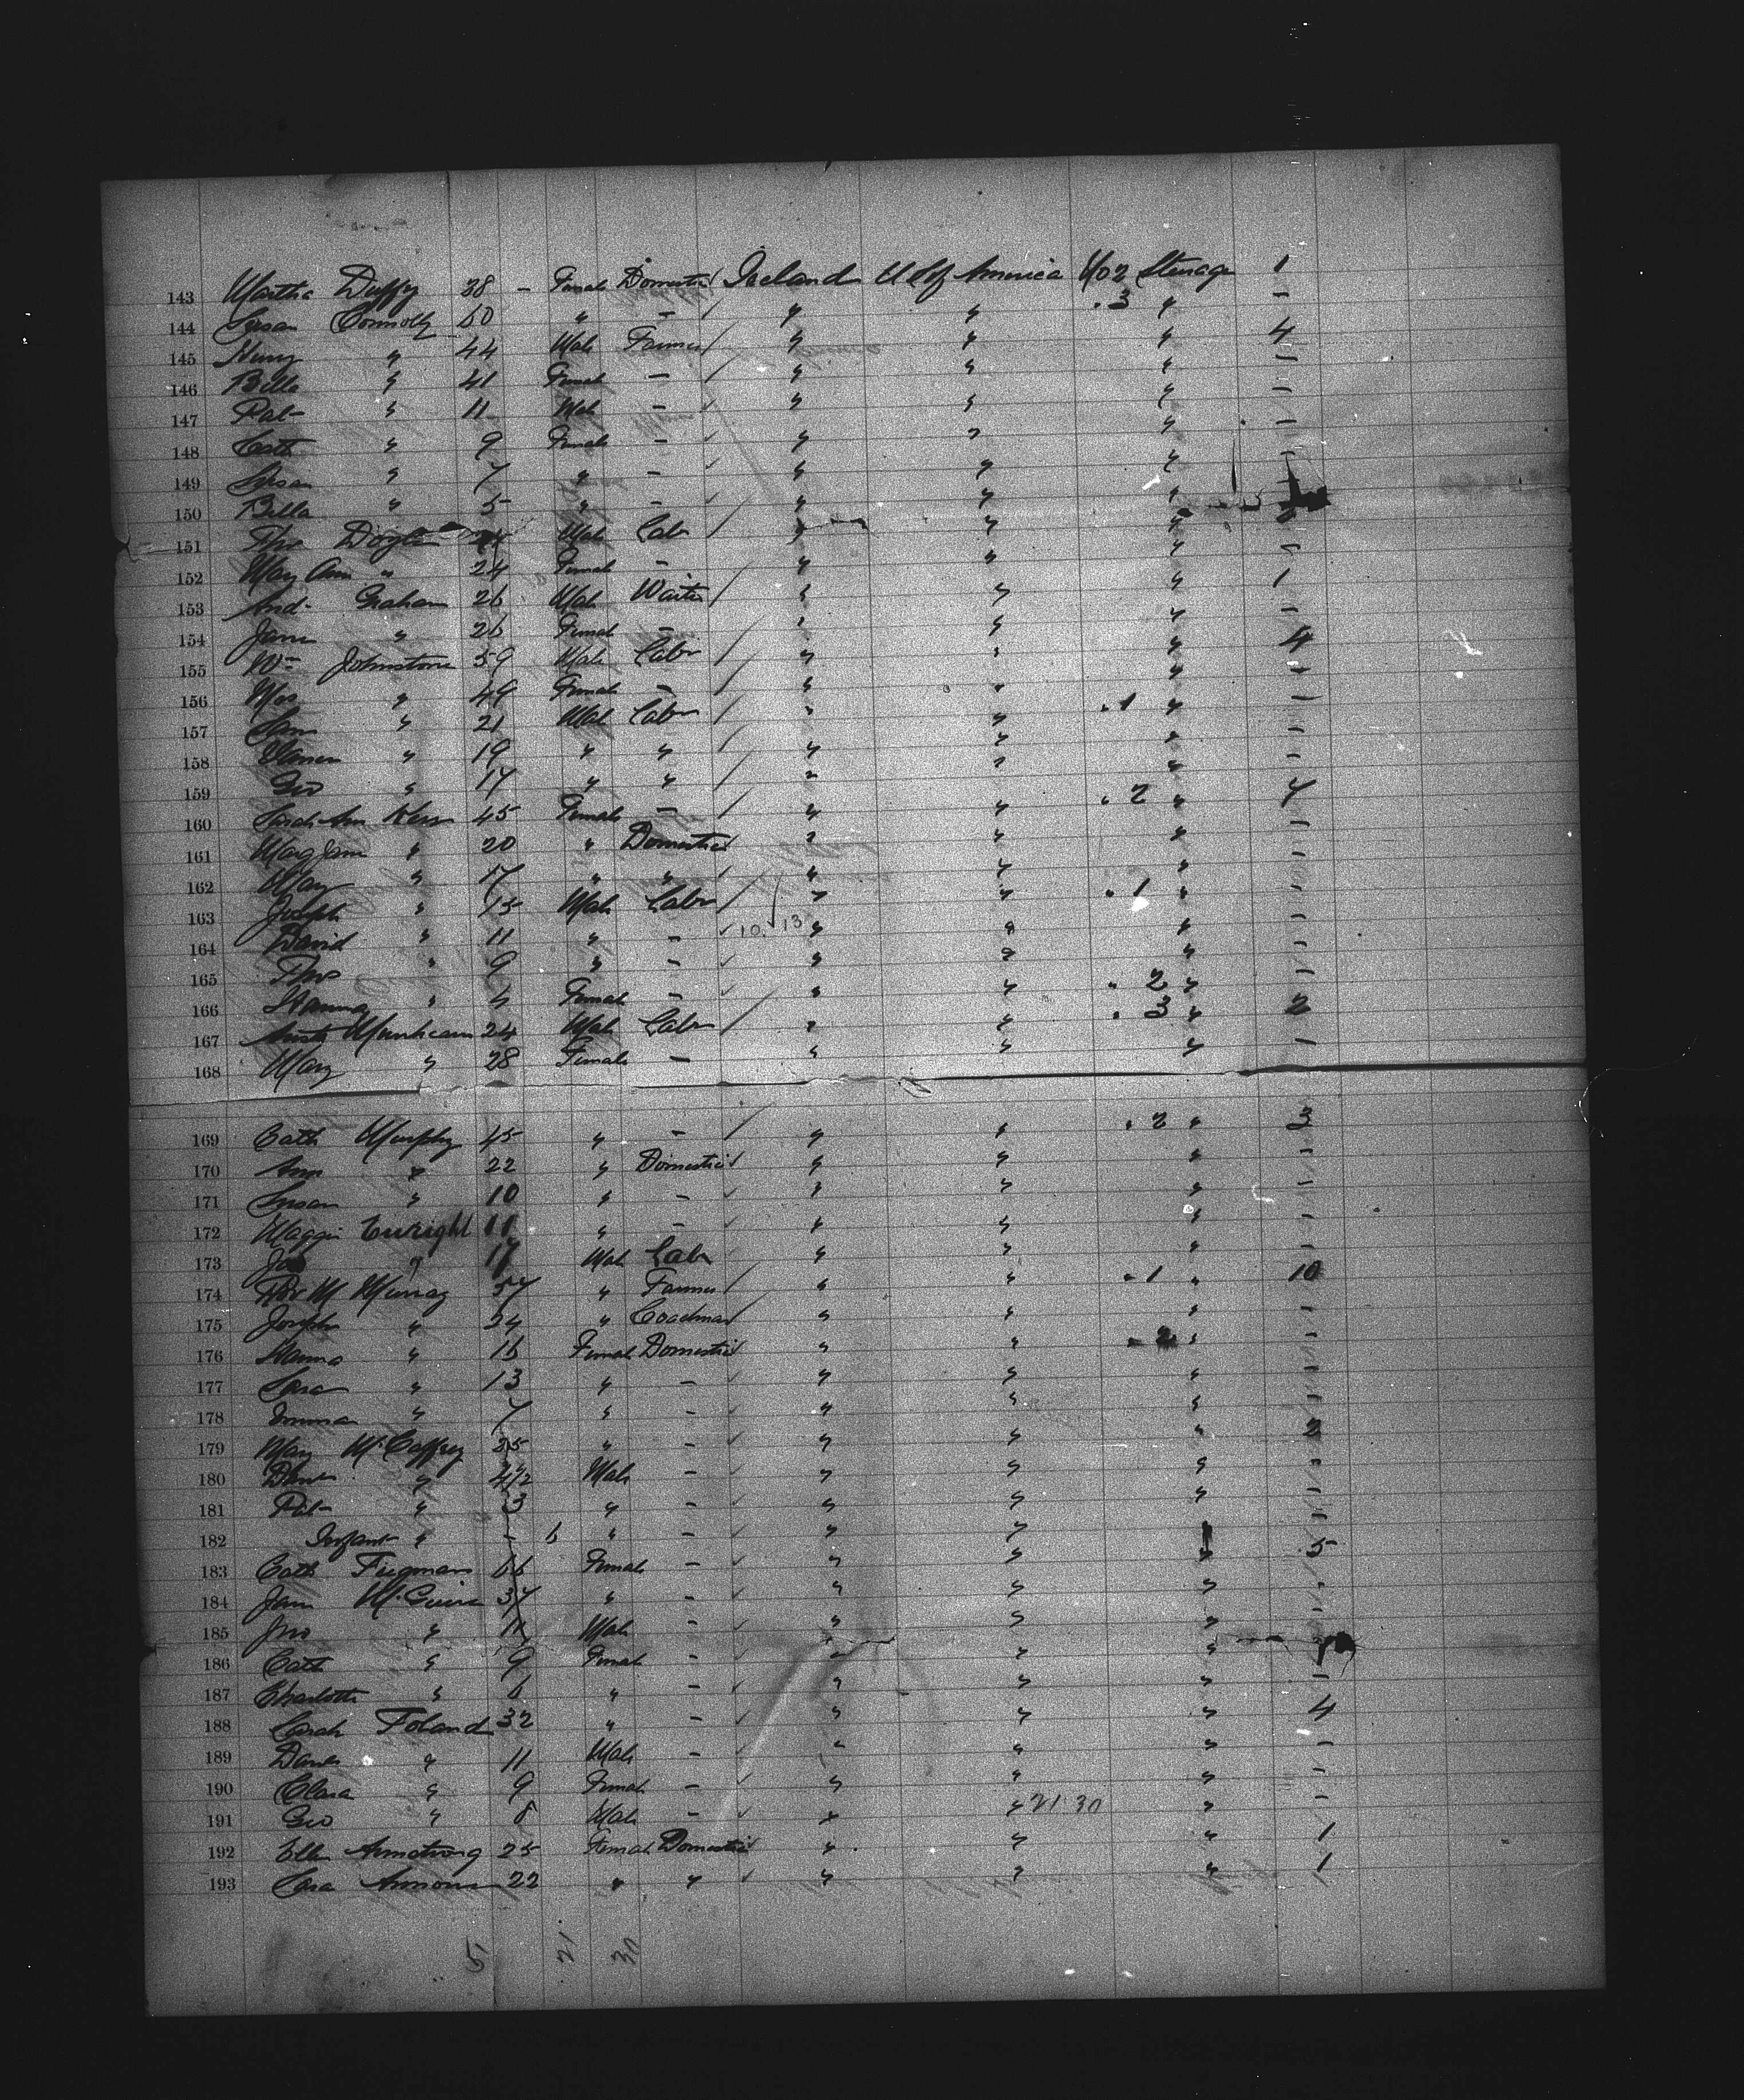 143 Martha Duffy 28 - Female Domestic Ireland U S of America No 2 Steerage 1
144 Susan Connolly 60 " - " " . 3 " -
145 Henry " 44 Male Farmer " " " 4
146 Bella " 41 Female - " " " -
147 Pat " 11 Male - " " " -
148 Cath " 9 Female - " " " -
149 Susan " 7 " - " " " -
150 Bella " 5 " - " " "
151 Thos Male Labr " " "
152 Mary Ann " 24 Female - " " " -
153 And. Graham 26 Male Waiter " " " 1
154 Jane " 26 Female - " " " -
155 Wm Johnstone 59 Male Labr " " " 4
156 Mrs " 49 Female - " " " -
157 Sam " 21 Male Labr " " . 1 " -
158 " 19 " " " " " -
159 Geo " 17 " " " " " -
160 Sarah Ann Kerr 45 Female - " " . 2 " 7
161 Marg Jane " 20 " Domestic " " " -
162 Mary " 17 " " " " " -
163 Joseph " 15 Male Labr " " . 1 " -
164 David " 11 " - 10. 13 " " " -
165 Thos " 9 " - " " " -
166 Hanna " Female - " " . 2 " -
167 24 Male Labr " " . 3 " 2
168 Mary " 28 Female - " " " -
169 Cath Murphy 45 " - " " . 2 " 3
170 Ann " 22 " Domestic " " " -
171 Susan " 10 " - " " " -
172 Maggie Enright 11 " - " " " -
173 " 17 Male Labr " " " -
174 Murray 57 " Farmer " " . 1 " 10
175 Joseph " 24 " Coachman " " " -
176 Hanna " 16 Female Domestic " " - 2 " -
177 Sara " 13 " - " " " -
178 Emma " 7 " - " " " -
179 Mary McCaffrey 25 " - " " " 2
180 " 4 1/2 Male - " " " -
181 Pat " 3 " - " " " -
182 Infant " - 6 " - " " -
183 Cath 66 Female - " " " 5
184 Jane McGuire 37 " - " " " -
185 Jno " 11 Male - " " " -
186 Cath " 9 Female - " " "
187 Charlotte " 6 " - " " " -
188 Sarah Foland 32 " - " " " 4
189 " 11 Male - " " " -
190 Clara " 9 Female - " " " -
191 Geo " 8 Male - " " 21 30 " -
192 Ellen Armstrong 25 Female Domestic " " " 1
193 Sara Armour 22 " " " " " 1
5 21 30